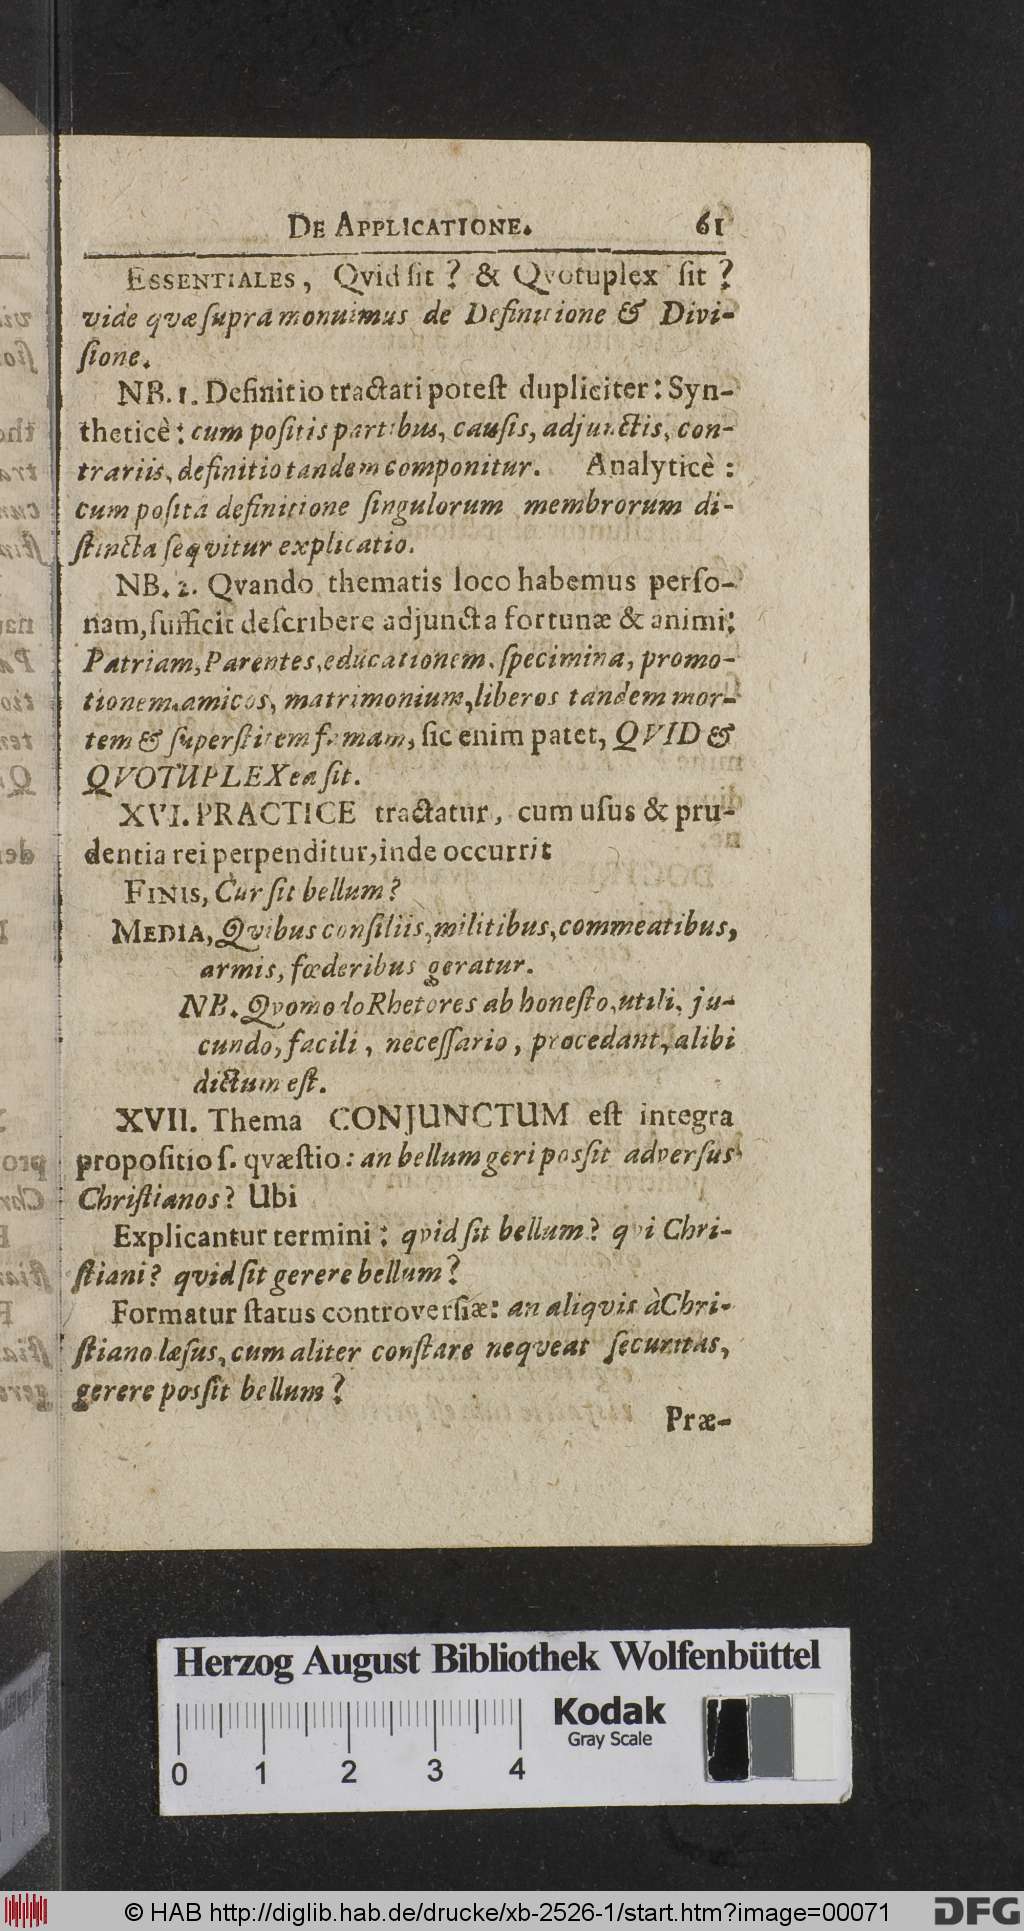 DE APPLICATIONE. 61
ESSENTIALES, Qvid ſit? & Qvotuplex ſit?
vide qvæ ſupra monuimus de Definitione & Divi-
ſione.
NB. 1. Definitio tractati poteſt dupliciter: Syn-
theticè: cum poſitis partibus, cauſis, adjunctis, con-
trariis, definitio tandem componitur. Analyticè:
cum poſita definitione ſingulorum membrorum di-
ſtincta ſeqvitur explicatio.
NB. 2. Qvando thematis loco habemus perſo-
nam, ſufficit deſcribere adjuncta fortunæ & animi:
Patriam, Parentes, educationem, ſpecimina, promo-
tionem, amicos, matrimonium, liberos tandem mor-
tem & ſuperſtitem famam, ſic enim patet, QVID &
QVOTUPLEX ea ſit.
XVI. PRACTICE tractatur, cum uſus & pru-
dentia rei perpenditur, inde occurrit
FINIS, Cur ſit bellum?
MEDIA, Qvibus conſiliis, militibus, commeatibus,
armis, fœderibus geratur.
NB. Qvomodo Rhetores ab honeſto, utili, ju-
cundo, facili, neceſſario, procedant, alibi
dictum eſt.
XVII. Thema CONJUNCTUM eſt integra
propoſitio ſ. qvæſtio: an bellum geri poſſit adverſus
Chriſtianos? Ubi
Explicantur termini: qvid ſit bellum? qvi Chri-
ſtiani? qvid ſit gerere bellum?
Formatur ſtatus controverſiæ: an aliqvis à Chri-
ſtiano læſus, cum aliter conſtare neqveat ſecuritas,
gerere poſſit bellum?
Præ-
Herzog August Bibliothek Wolfenbüttel
Kodak
Gray Scale
0 1 2 3 4
© HAB http://diglib.hab.de/drucke/xb-2526-1/start.htm?image=00071
DFG